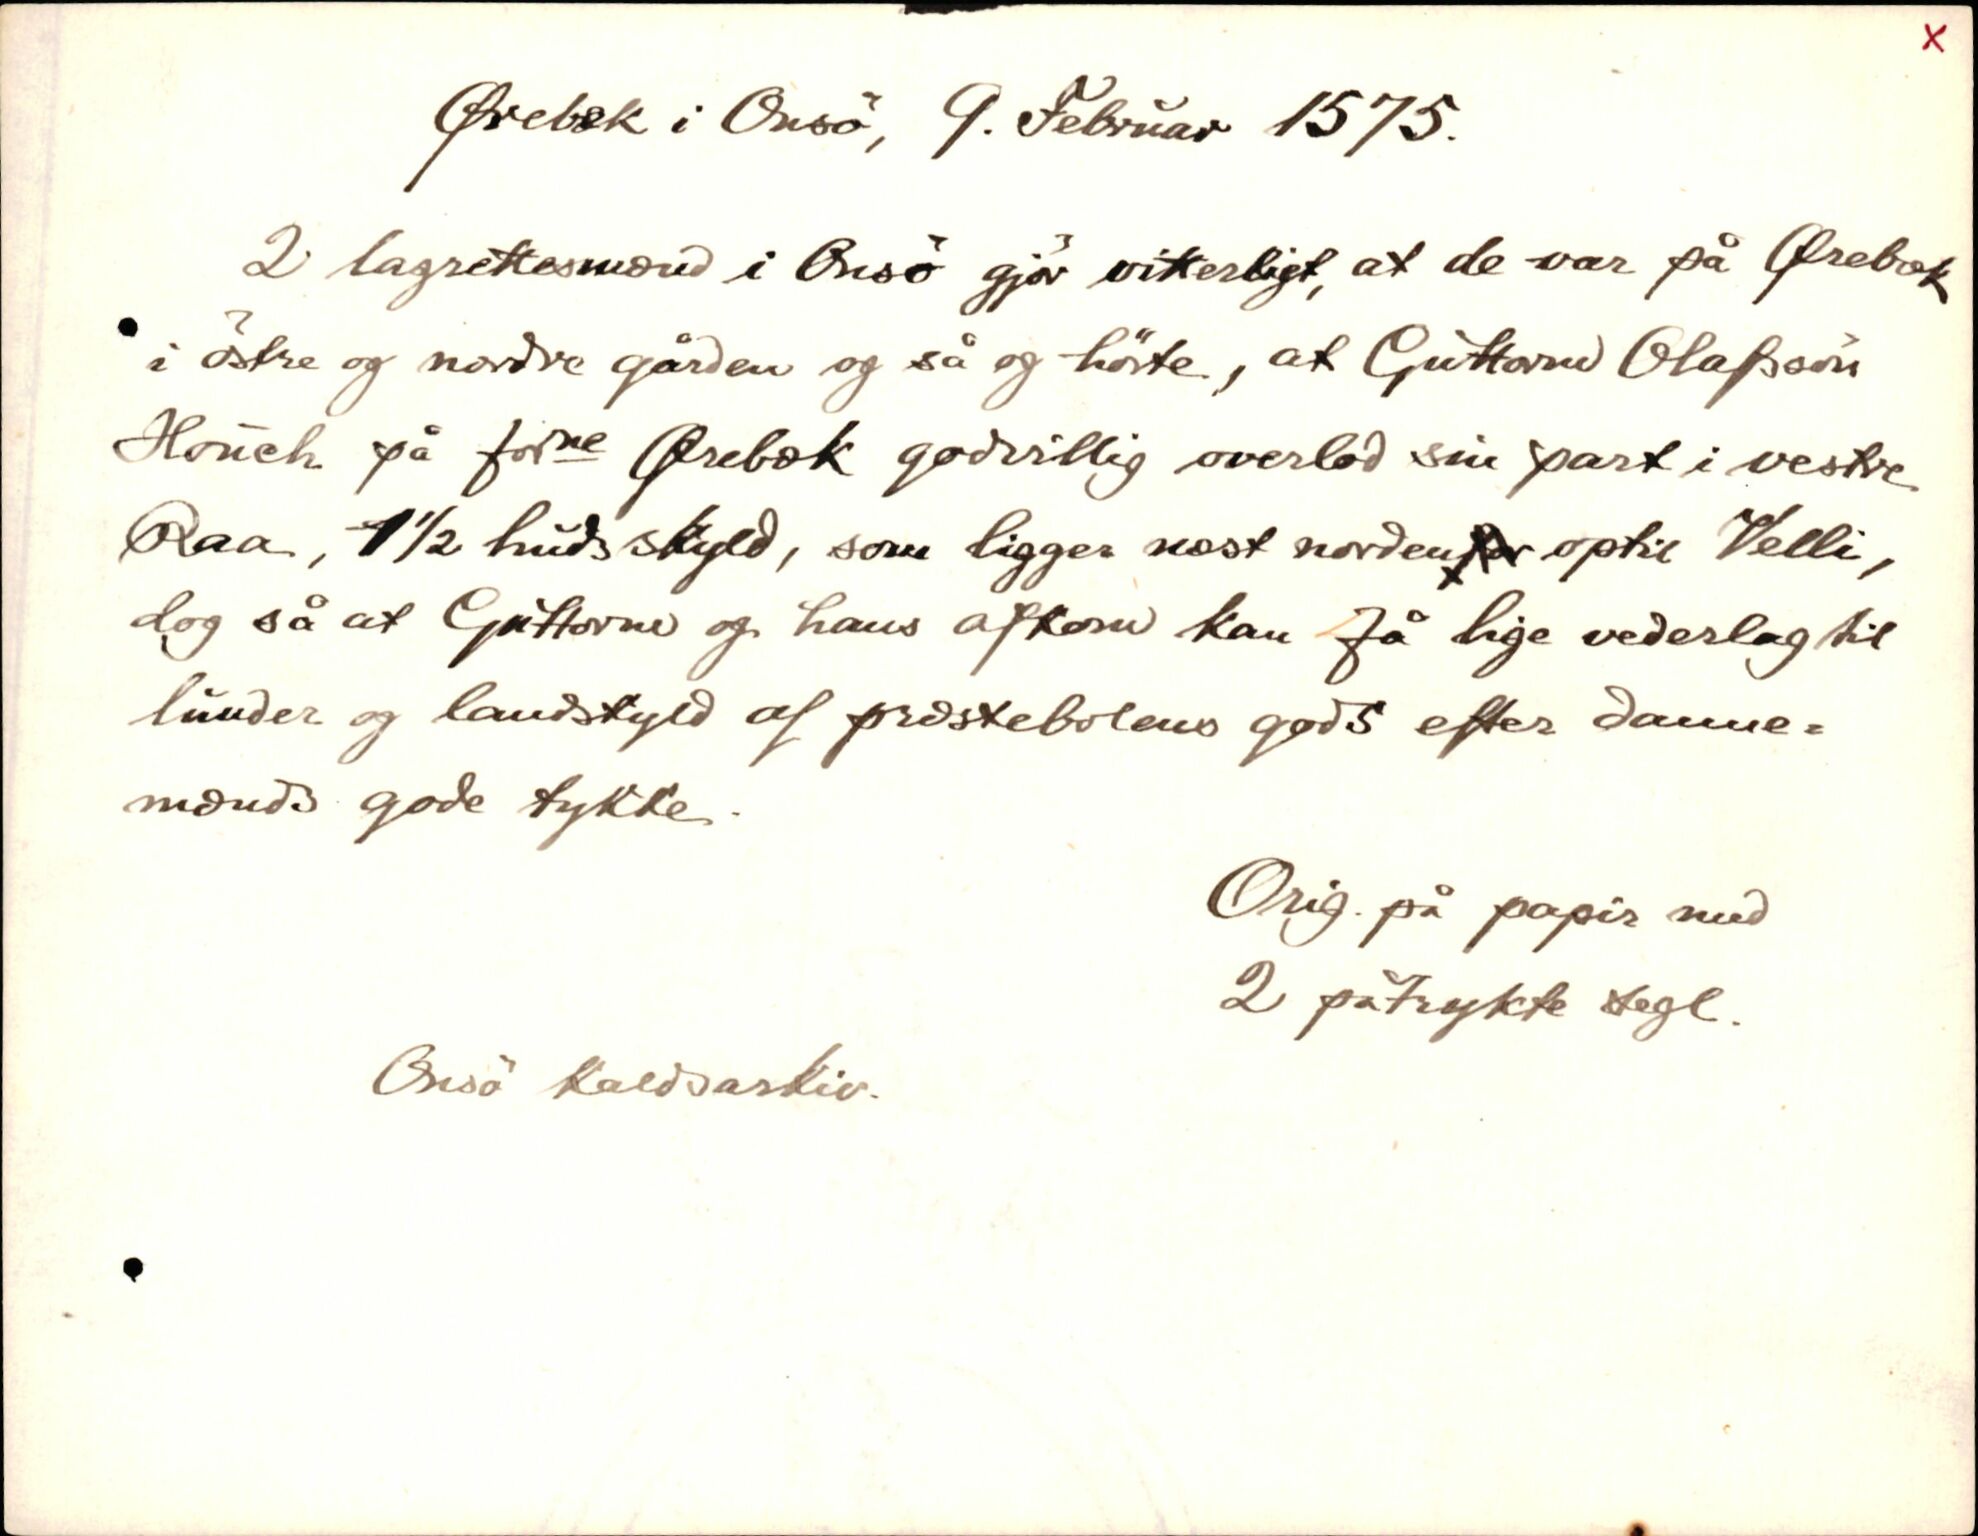 x
Ørebæk i Onsö, 9. Februar 1575.
2 lagrettesmænd i Onsö gjör vitterligt, at de var på Ørebæk
i östre og nordre gården og så og hörte, at Guttorm Olafssön
Houch på forne Ørebæk godvillig overlod sin part i vestre
Raa, 1 1/2 huds skyld, som ligger næst norden optil Velli,
dog så at Guttorm og hans afkom kan få lige vederlag til
lunder og landskyld af præstebolens gods efter danne-
mænds gode tykke.
Orig. på papir med
2 påtrykte segl.
Onsö kaldsarkiv.